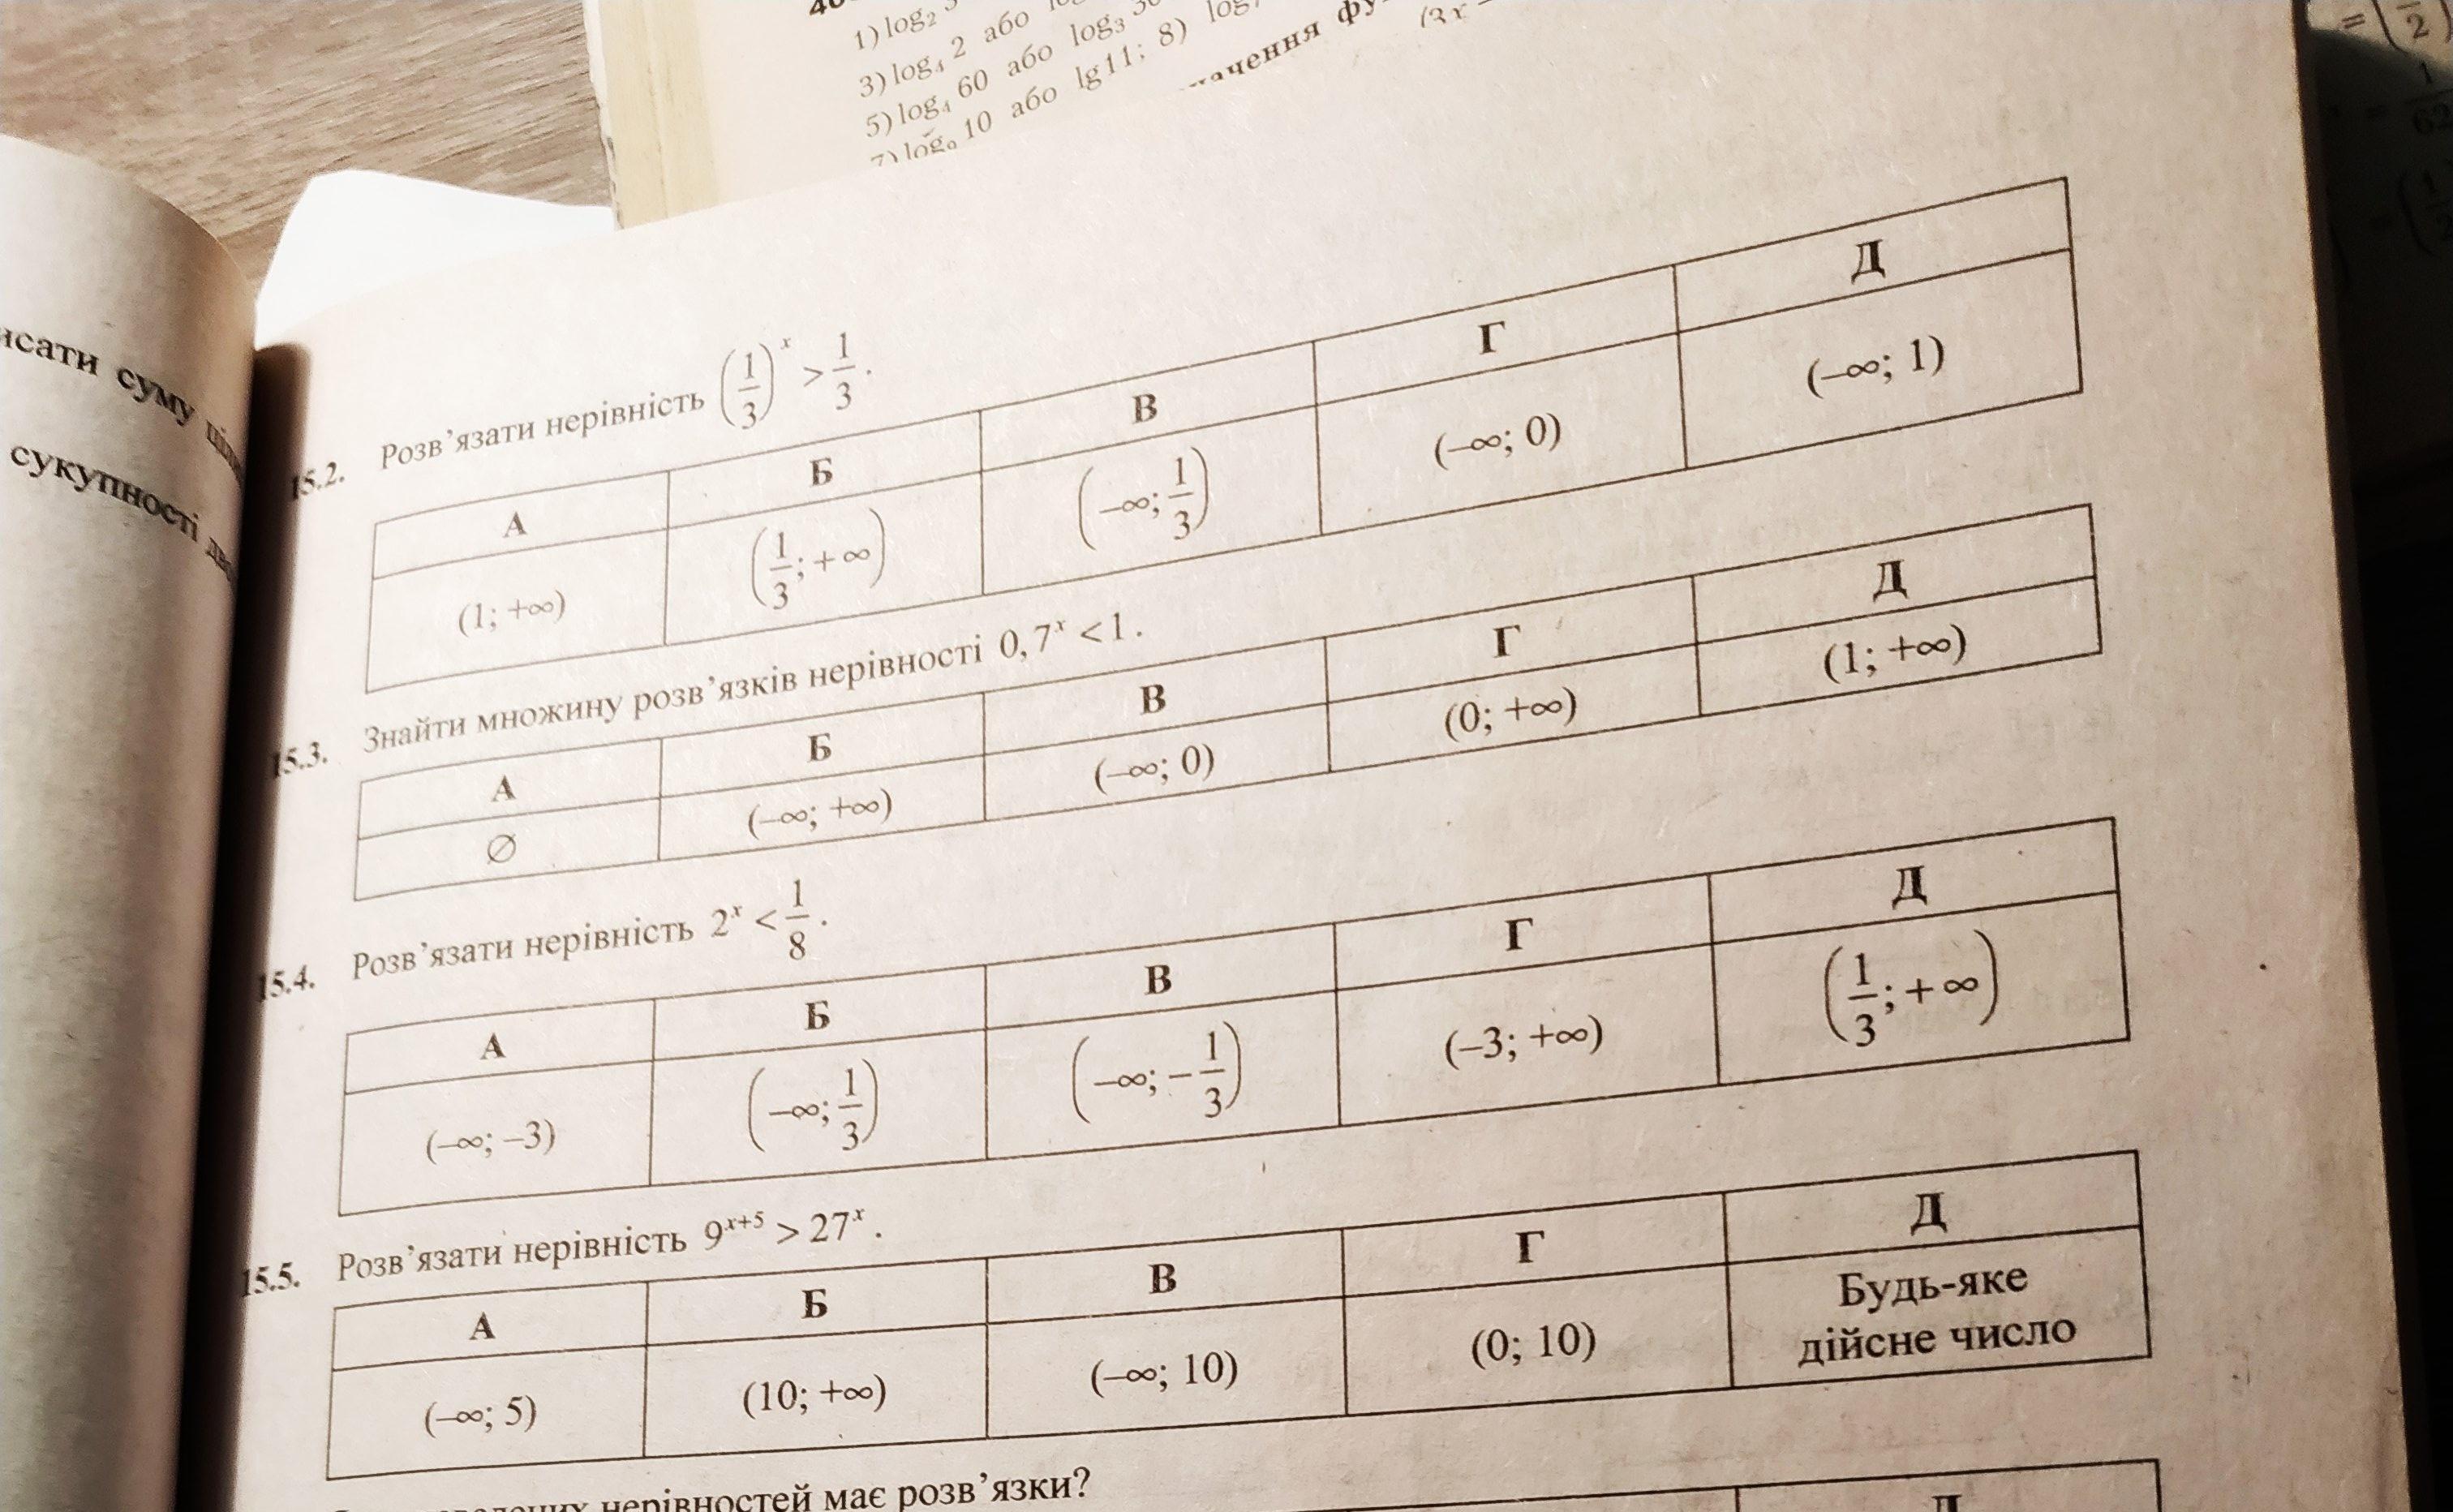 1) log₂
3) log₄ 2 або
5) log₄ 60 або log₃
7) log₉ 10 або lg 11; 8)
15.2. Розв’язати нерівність (1/3)ˣ > 1/3.
А Б В Г Д
(1; +∞) (1/3; +∞) (–∞; 1/3) (–∞; 0) (–∞; 1)
15.3. Знайти множину розв’язків нерівності 0,7ˣ < 1.
А Б В Г Д
∅ (–∞; +∞) (–∞; 0) (0; +∞) (1; +∞)
15.4. Розв’язати нерівність 2ˣ < 1/8.
А Б В Г Д
(–∞; –3) (–∞; 1/3) (–∞; –1/3) (–3; +∞) (1/3; +∞)
15.5. Розв’язати нерівність 9ˣ⁺⁵ > 27ˣ.
А Б В Г Д
(–∞; 5) (10; +∞) (–∞; 10) (0; 10) Будь-яке
дійсне число
нерівностей має розв’язки?
Д
суму
сукупності